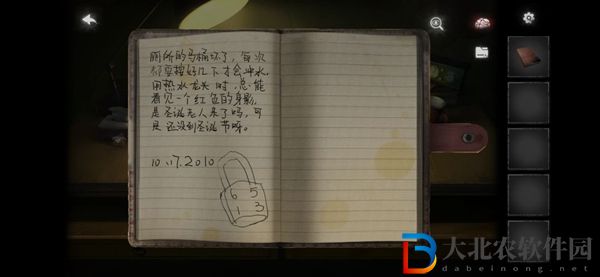 厕所的马桶坏了，每次
都要按好几下才会冲水。
用热水龙头时，总能
看见一个红色的身影，
是圣诞老人来了吗，可
是还没到圣诞节呀。
10.17.2010
6 5
1 3
大北农软件园
dabeinong.net